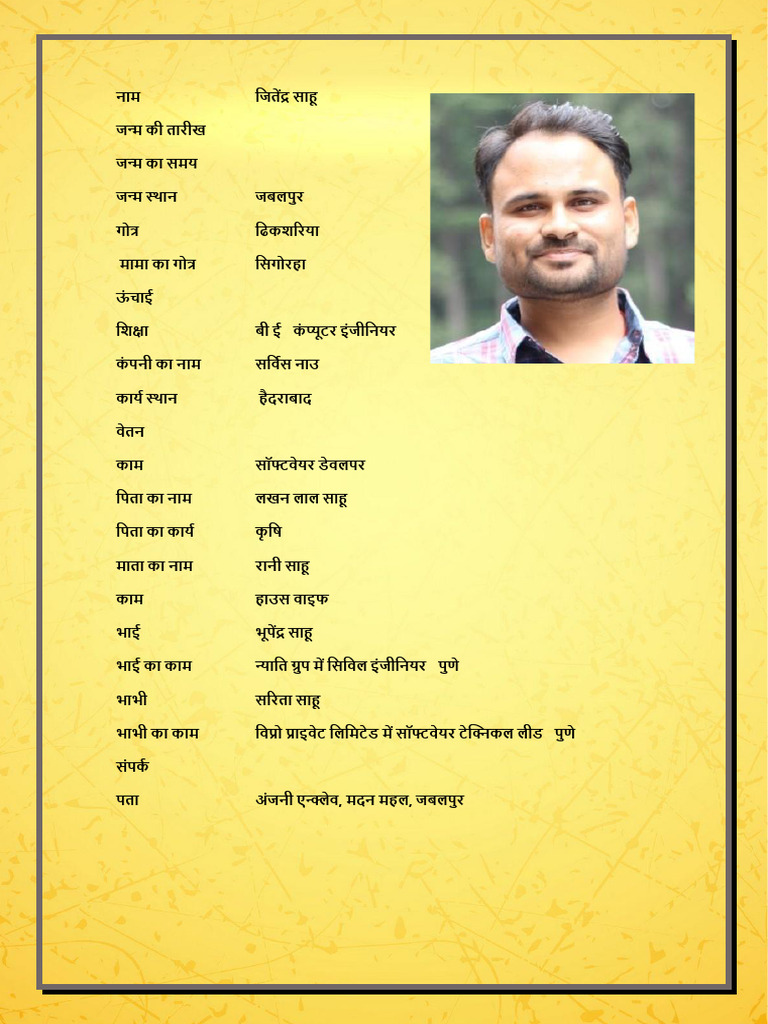 नाम जितेंद्र साहू
जन्म की तारीख
जन्म का समय
जन्म स्थान जबलपुर
गोत्र ढिकशरिया
मामा का गोत्र सिगोरहा
ऊंचाई
शिक्षा बी ई कंप्यूटर इंजीनियर
कंपनी का नाम सर्विस नाउ
कार्य स्थान हैदराबाद
वेतन
काम सॉफ्टवेयर डेवलपर
पिता का नाम लखन लाल साहू
पिता का कार्य कृषि
माता का नाम रानी साहू
काम हाउस वाइफ
भाई भूपेंद्र साहू
भाई का काम न्याति ग्रुप में सिविल इंजीनियर पुणे
भाभी सरिता साहू
भाभी का काम विप्रो प्राइवेट लिमिटेड में सॉफ्टवेयर टेक्निकल लीड पुणे
संपर्क
पता अंजनी एन्क्लेव, मदन महल, जबलपुर